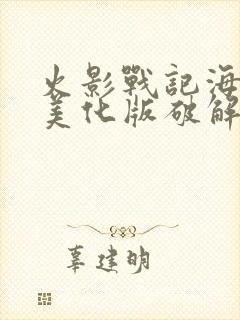 火影戰記海
美化版破解
辜建明